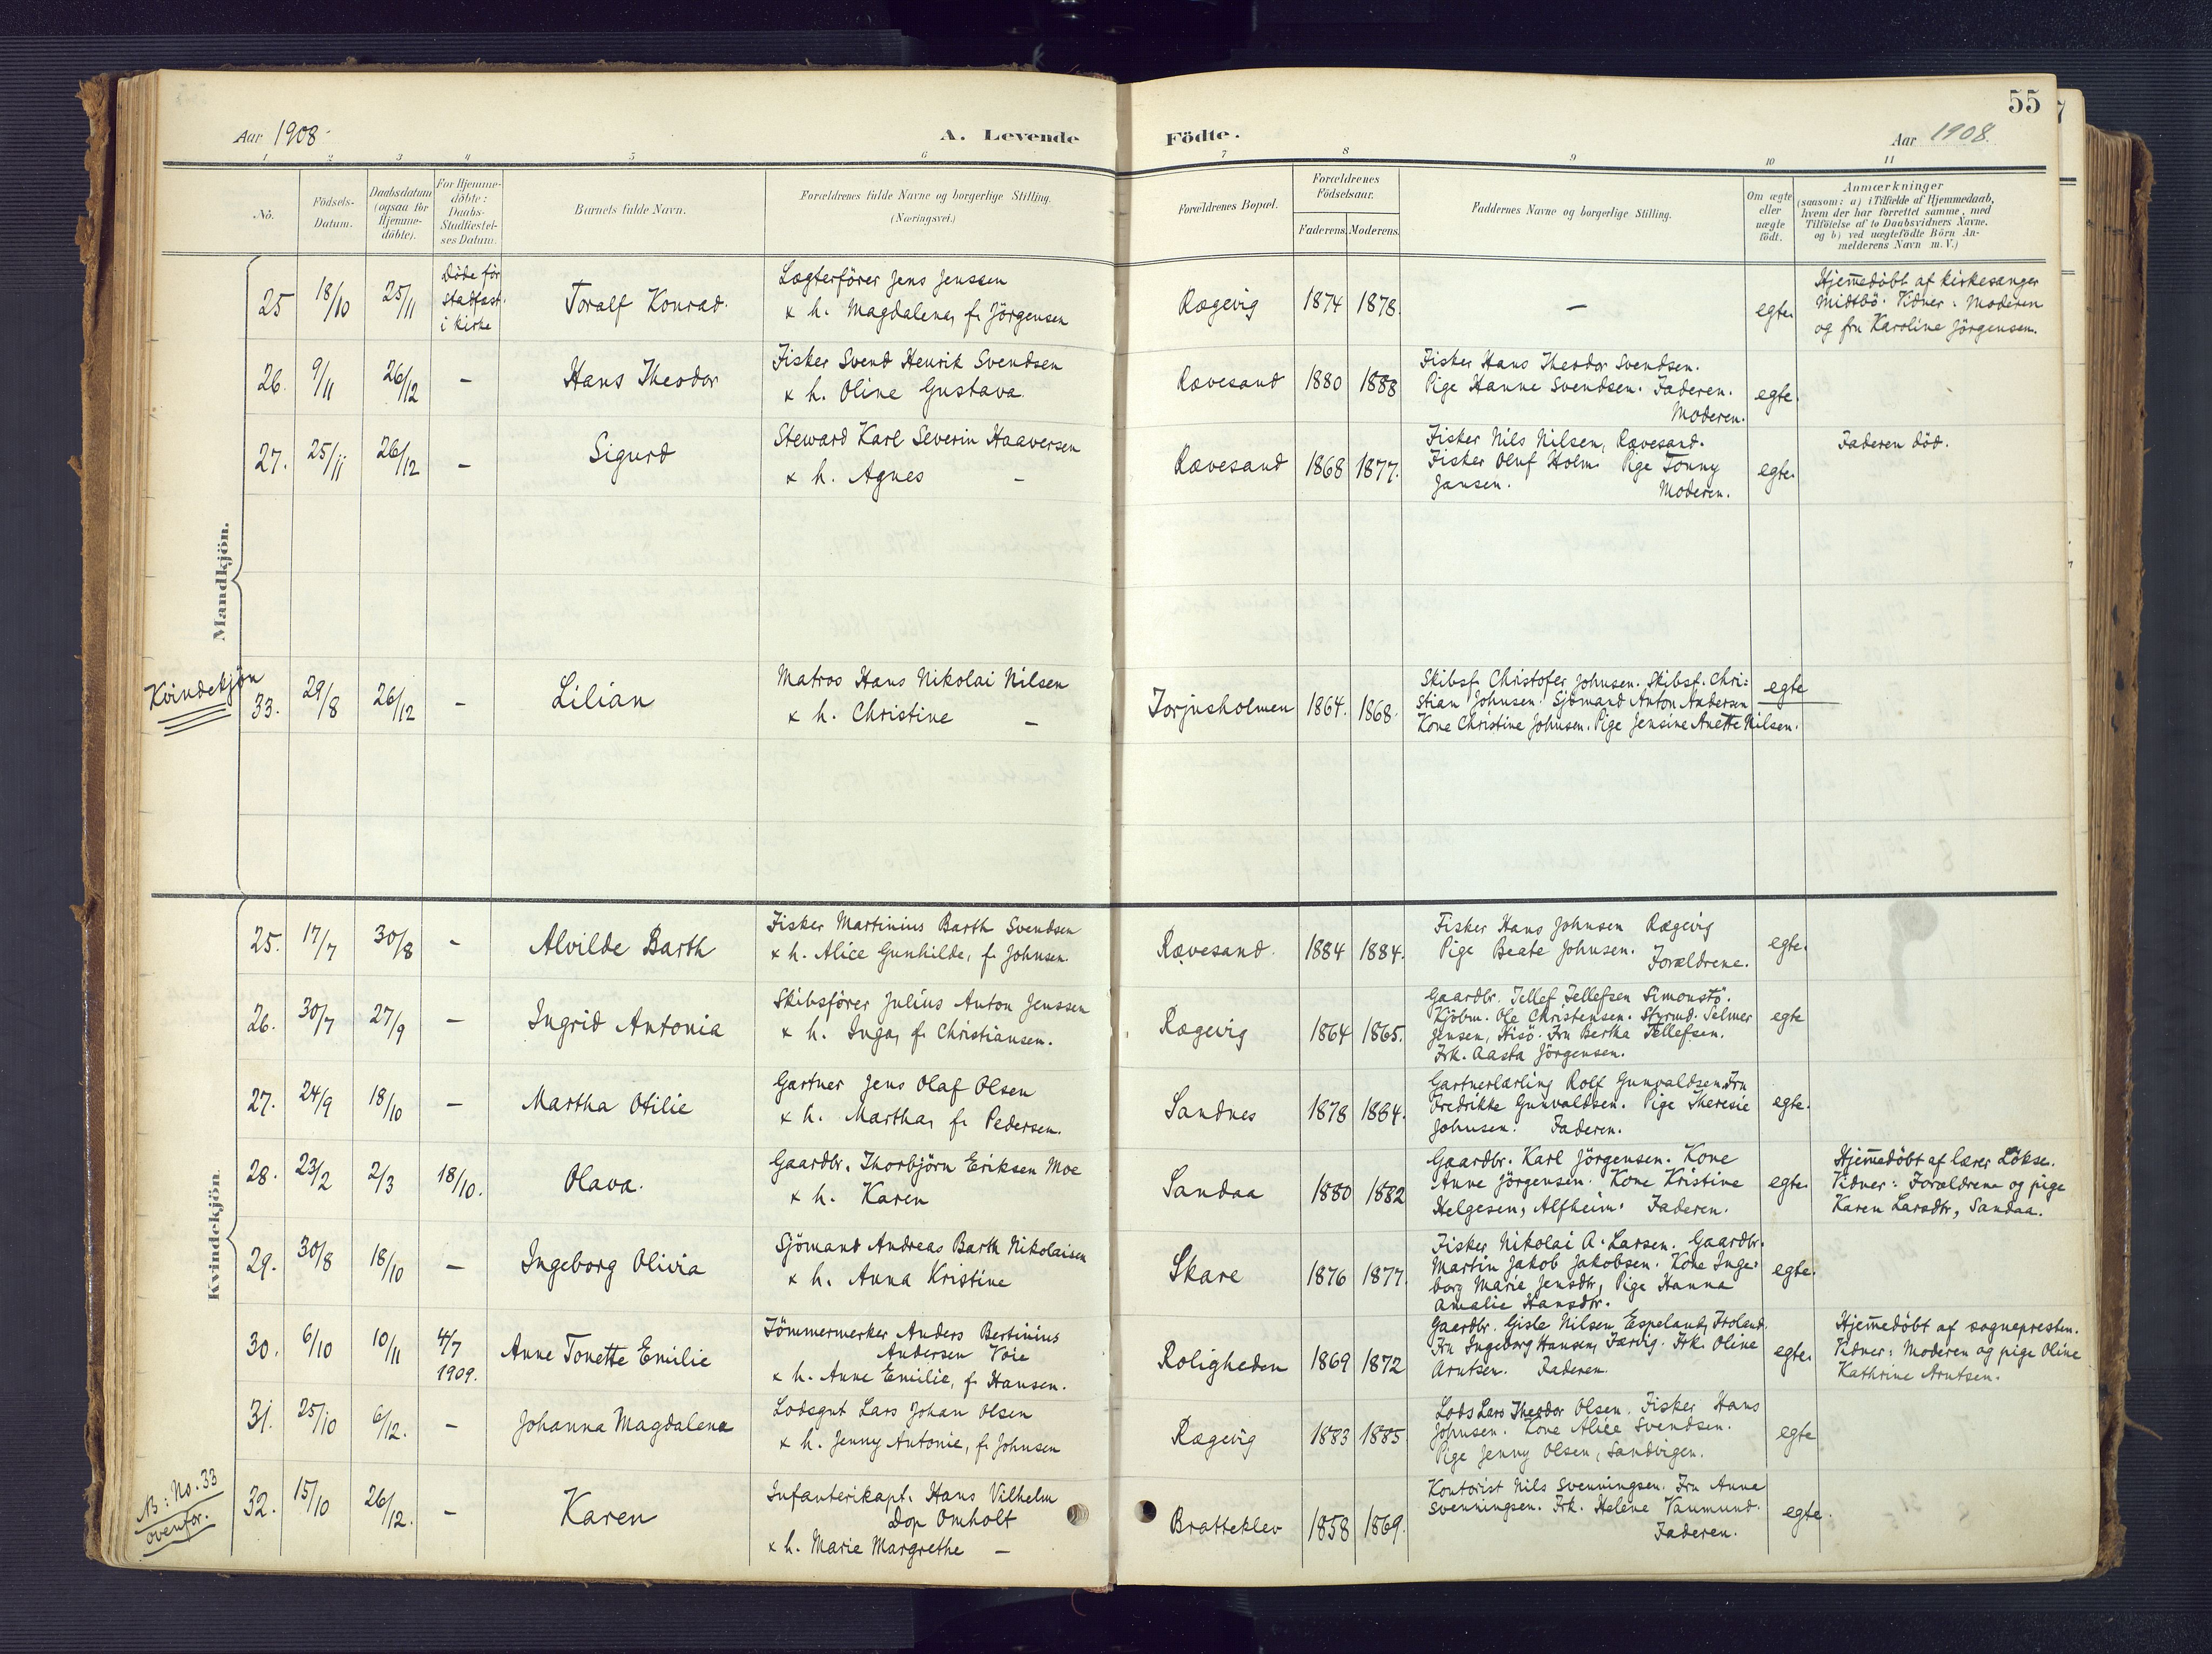 55
Aar 1908.
A. Levende
Födte.
Aar 1908.
1 2 3 4 5 6 7 8 9 10 11
No.
Födsels-
Datum.
Daabsdatum
(ogsaa for
Hjemme-
döbte).
For Hjemme-
döbte:
Daabs-
Stadfæstel-
ses Datum.
Barnets fulde Navn.
Forældrenes fulde Navne og borgerlige Stilling.
(Næringsvei.)
Forældrenes Bopæl.
Forældrenes
Födselsaar.
Faderens. Moderens.
Faddernes Navne og borgerlige Stilling.
Om ægte
eller
uægte
födt.
Anmærkninger
(saasom: a) i Tilfælde af Hjemmedaab,
hvem der har forrettet samme, med
Tilföielse af to Daabsvidners Navne.
og b) ved uægtefödte Börn An-
melderens Navn m. V.)
Mandkjön.
25 18/10 25/11
Döde før
stadfæst.
i kirke
Toralf Konrad.
Lægterfører Jens Jenssen
x h. Magdalena, f. Jörgensen
Rægevig 1874 1878. — egte.
Hjemmedöbt af kirkesanger
Midtbö. Vidner: Moderen
og fru Karoline Jörgensen.
26. 9/11 26/12 — Hans Theodor
Fisker Svend Henrik Svendsen
x h. Oline Gustava.
Rævesand 1880 1883
Fisker Hans Theodor Svendsen.
Pige Hanne Svendsen. Faderen.
Moderen.
egte.
27. 25/11 26/12 — Sigurd
Steward Karl Severin Haaversen
x h. Agnes —
Rævesand 1868 1877.
Fisker Nils Nilsen, Rævesand.
Fisker Oluf Holm. Pige Tonny
Jansen. Moderen.
egte.
Faderen död.
Kvindekjön
33. 29/8 26/12 — Lilian
Matros Hans Nikolai Nilsen
x h. Christine —
Torjusholmen 1864. 1868.
Skibsf. Christofer Johnsen. Skibsf. Chri-
stian Johnsen. Sjömand Anton Andersen
Kone Christine Johnsen. Pige Jensine Anette Nilsen.
egte
Kvindekjön.
25. 17/7 30/8 — Alvilde Barth
Fisker Martinius Barth Svendsen
x h. Alice Gunhilde, f. Johnsen.
Rævesand. 1884 1884.
Fisker Hans Johnsen Rægevig
Pige Beate Johnsen.
Forældrene.
egte.
26. 30/7 27/9 — Ingrid Antonia
Skibsförer Julius Anton Jenssen
x h. Inga, f. Christiansen.
Rægevig 1864 1865.
Gaardbr. Tellef Tellefsen Simonstö.
Kjöbm. Ole Christensen. Styrmd. Selmer
Jensen, Hisö. Fru Bertha Tellefsen.
Frk. Aasta Jörgensen.
egte
27. 24/9 18/10 — Martha Otilie
Gartner Jens Olaf Olsen
x h. Martha, f. Pedersen.
Sandnes 1878 1884.
Gartnerlærling Rolf Gunvaldsen. Fru
Fredrikke Gunvaldsen. Pige Theresie
Johnsen. Faderen.
egte.
28. 23/2 2/3 18/10. Olava.
Gaardbr. Thorbjörn Eriksen Moe
x h. Karen
Sandaa 1880 1882
Gaardbr. Karl Jörgensen. Kone
Anne Jörgensen. Kone Kristine
Helgesen, Alfheim. Faderen.
egte.
Hjemmedöbt af lærer Lökse.
Vidner: Forældrene og pige
Karen Larsdtr, Sandaa.
29. 30/8 18/10 — Ingeborg Olivia
Sjömand Andreas Barth Nikolaisen
x h. Anna Kristine
Skare 1876 1877.
Fisker Nikolai A. Larsen. Gaardbr.
Martin Jakob Jakobsen. Kone Inge-
borg Marie Jensdtr, Pige Hanna
Amalie Hansdtr.
egte.
30. 6/10 10/11 4/7
1909.
Anne Tonette Emilie
Tömmermerker Anders Bertinius
Andersen Voie
x h. Anne Emilie, f. Hansen.
Roligheden 1869 1872
Gaardbr. Gisle Nilsen Espeland, Froland.
Fru Ingeborg Hansen, Færvig. Frk. Oline
Arntsen. Faderen.
egte.
Hjemmedöbt af sognepresten.
Vidner: Moderen og pige Oline
Kathrine Arntsen.
31. 25/10 6/12. — Johanna Magdalena
Lodsgut Lars Johan Olsen
x h. Jenny Antonie, f. Johnsen
Rægevig 1883 1885
Lods Lars Theodor Olsen. Fisker Hans
Johnsen. Kone Alice Svendsen.
Pige Jenny Olsen, Sandvigen.
egte
NB: No. 33
ovenfor.
32. 15/10 26/12. — Karen
Infanterikapt. Hans Vilhelm
Dop Omholt
x h. Marie Margrethe —
Bratteklev 1858 1869.
Kontorist Nils Svenningsen. Fru Anna
Svenningsen. Frk. Helene Vanmund.
Faderen.
egte.